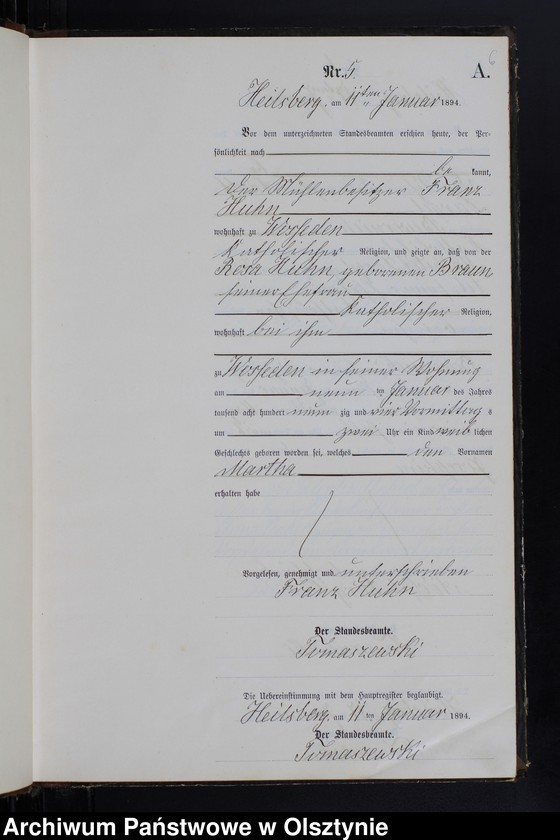 6
Nr. 5.
A.
Heilsberg, am 11ten Januar 1894.
Vor dem unterzeichneten Standesbeamten erschien heute, der Per-
sönlichkeit nach
be kannt,
der Mühlenbesitzer Franz
Huhn
wohnhaft zu Wosseden
Katholischer Religion, und zeigte an, daß von der
Rosa Huhn, geborenen Braun
seiner Ehefrau
Katholischer Religion,
wohnhaft bei ihm
zu Wosseden in seiner Wohnung
am neun ten Januar des Jahres
tausend acht hundert neun zig und vier Vormittag s
um zwei Uhr ein Kind weib lichen
Geschlechts geboren worden sei, welches den Vornamen
Martha
erhalten habe
Vorgelesen, genehmigt und unterschrieben
Franz Huhn
Der Standesbeamte.
Tomaszewski
Die Uebereinstimmung mit dem Hauptregister beglaubigt.
Heilsberg, am 11 ten Januar 1894.
Der Standesbeamte.
Tomaszewski
Archiwum Państwowe w Olsztynie